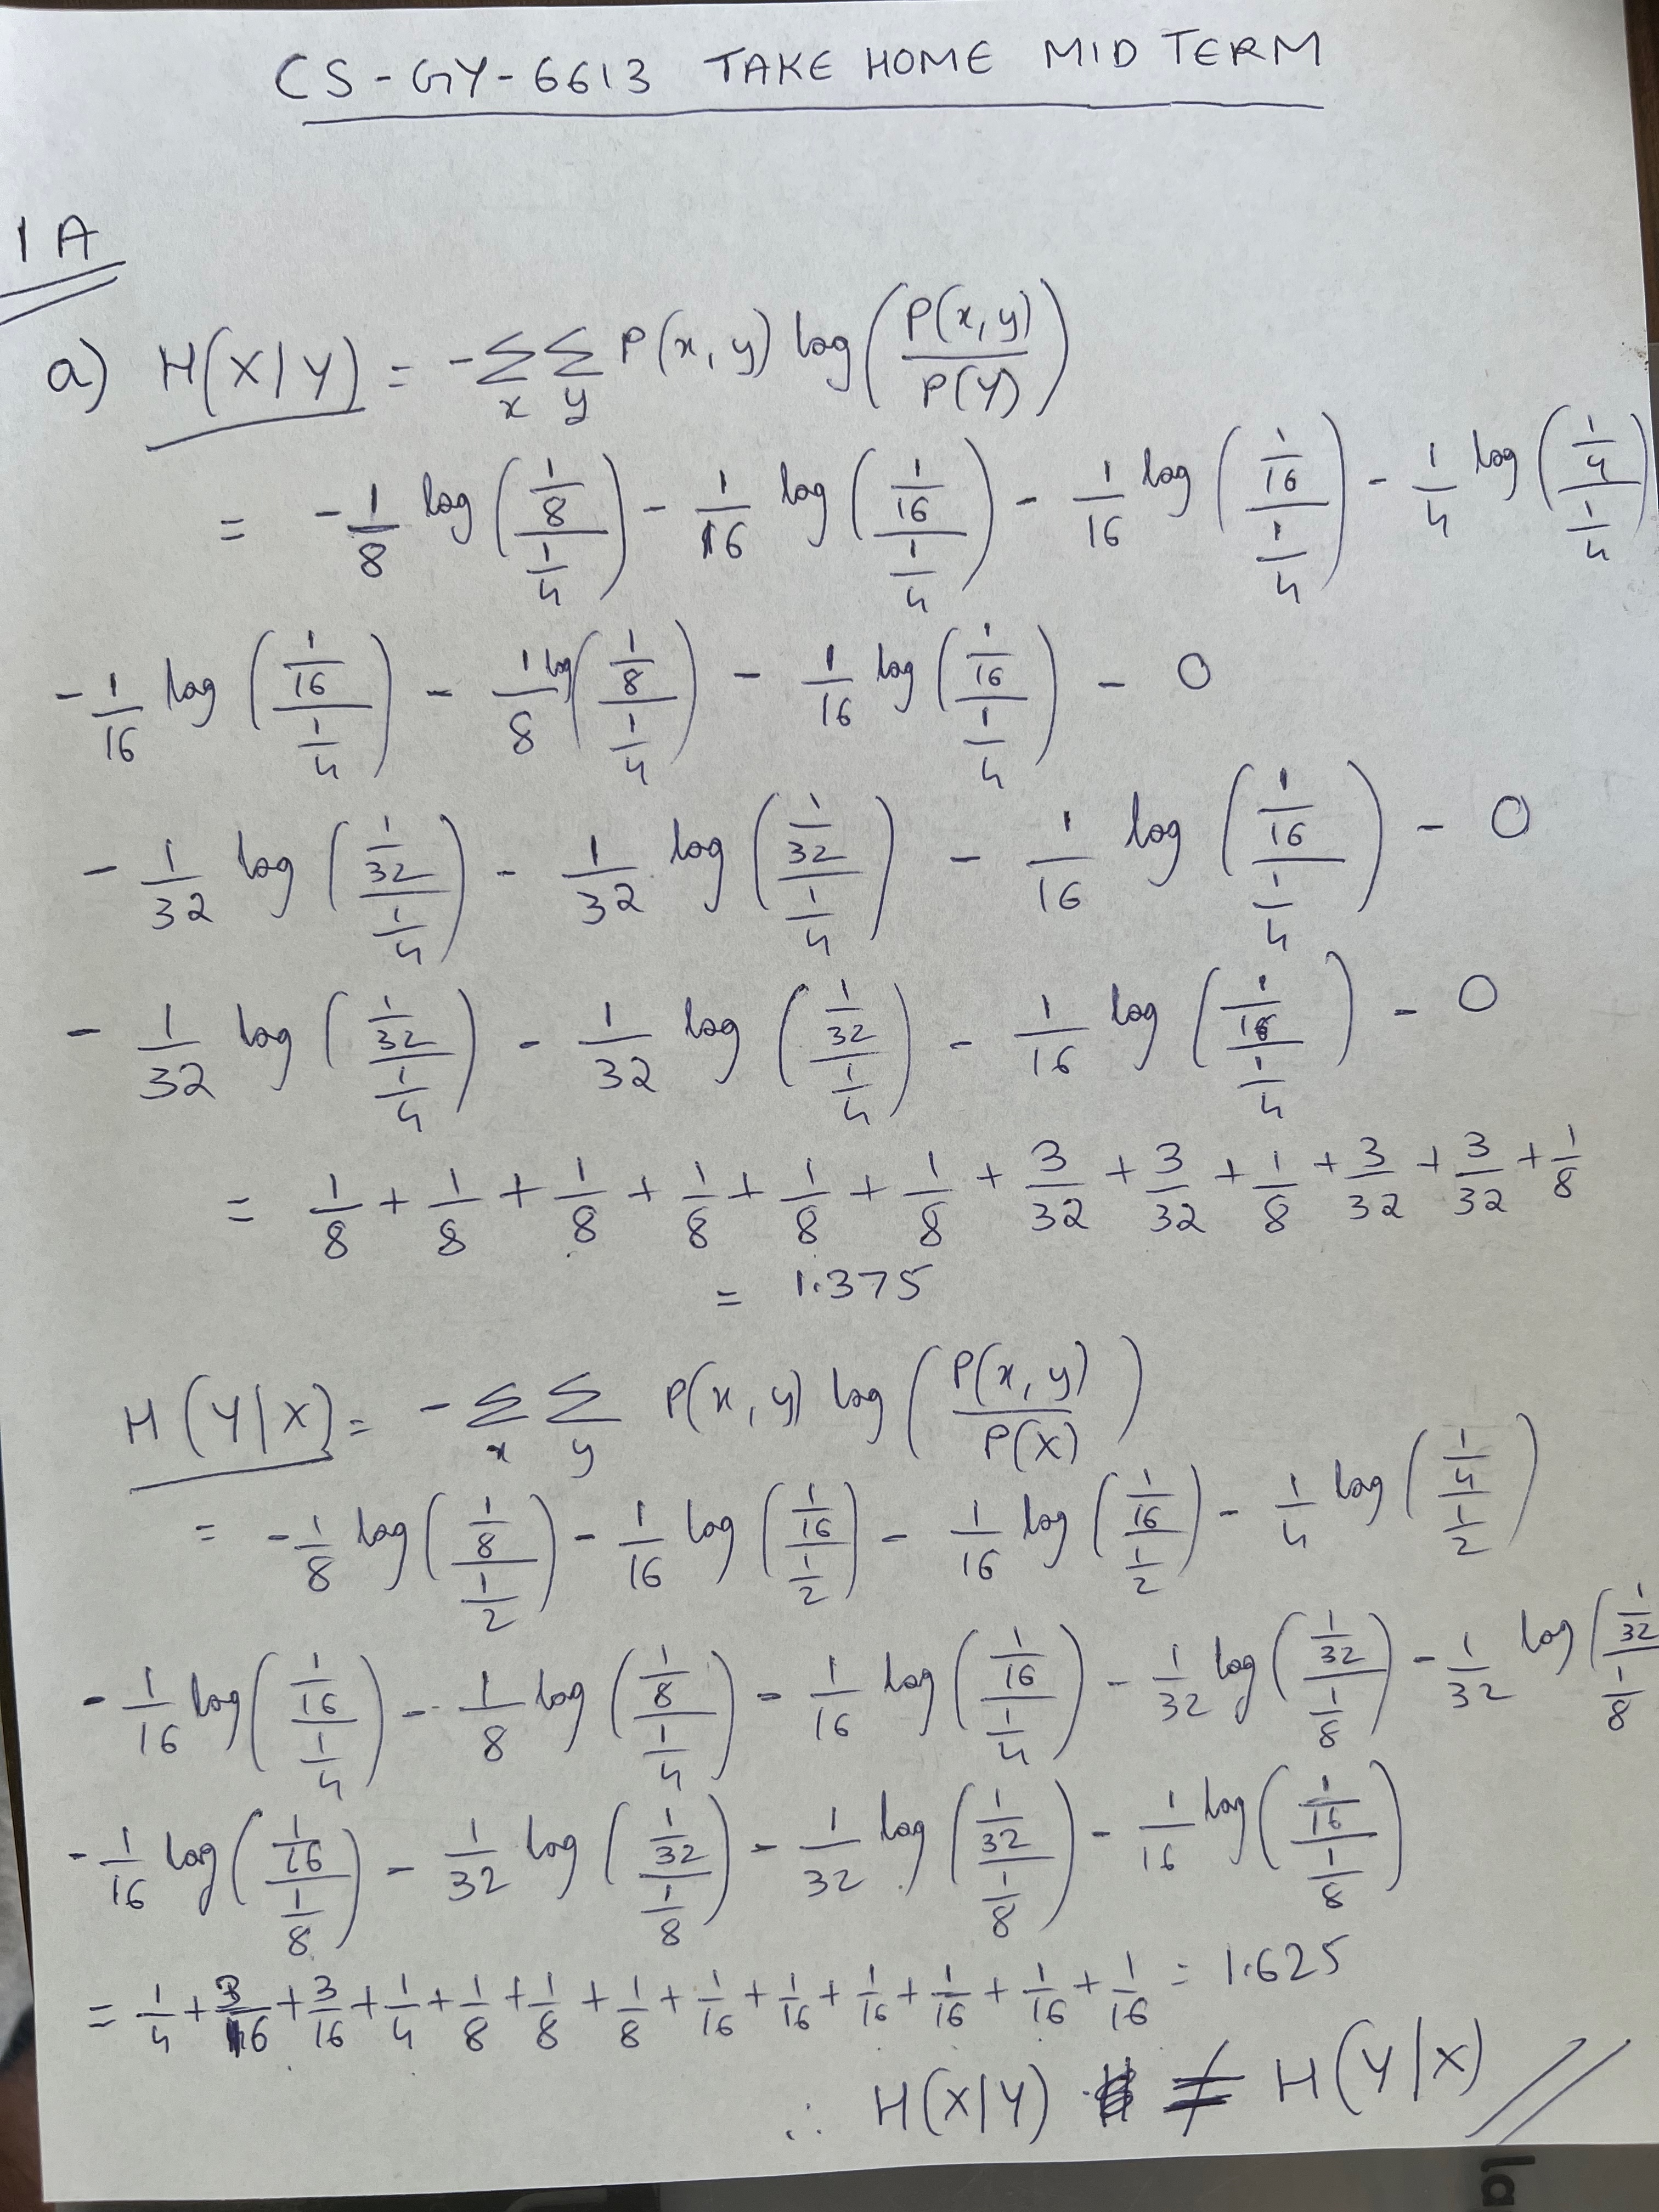 CS-GY-6613 TAKE HOME MID TERM
1A
a) H(X/Y) = -∑_x ∑_y P(x,y) log( P(x,y) / P(Y) )
= -1/8 log( (1/8)/(1/4) ) - 1/16 log( (1/16)/(1/4) ) - 1/16 log( (1/16)/(1/4) ) - 1/4 log( (1/4)/(1/4) )
-1/16 log( (1/16)/(1/4) ) - 1/8 log( (1/8)/(1/4) ) - 1/16 log( (1/16)/(1/4) ) - 0
-1/32 log( (1/32)/(1/4) ) - 1/32 log( (1/32)/(1/4) ) - 1/16 log( (1/16)/(1/4) ) - 0
-1/32 log( (1/32)/(1/4) ) - 1/32 log( (1/32)/(1/4) ) - 1/16 log( (1/16)/(1/4) ) - 0
= 1/8 + 1/8 + 1/8 + 1/8 + 1/8 + 1/8 + 3/32 + 3/32 + 1/8 + 3/32 + 3/32 + 1/8
= 1.375
H(Y/X) = -∑_x ∑_y P(x,y) log( P(x,y) / P(X) )
= -1/8 log( (1/8)/(1/2) ) - 1/16 log( (1/16)/(1/2) ) - 1/16 log( (1/16)/(1/2) ) - 1/4 log( (1/4)/(1/2) )
-1/16 log( (1/16)/(1/4) ) - 1/8 log( (1/8)/(1/4) ) - 1/16 log( (1/16)/(1/4) ) - 1/32 log( (1/32)/(1/8) ) - 1/32 log( (1/32)/(1/8)
-1/16 log( (1/16)/(1/8) ) - 1/32 log( (1/32)/(1/8) ) - 1/32 log( (1/32)/(1/8) ) - 1/16 log( (1/16)/(1/8) )
= 1/4 + 3/16 + 3/16 + 1/4 + 1/8 + 1/8 + 1/8 + 1/16 + 1/16 + 1/16 + 1/16 + 1/16 + 1/16 = 1.625
∴ H(X/Y) ≠ H(Y/X)
la